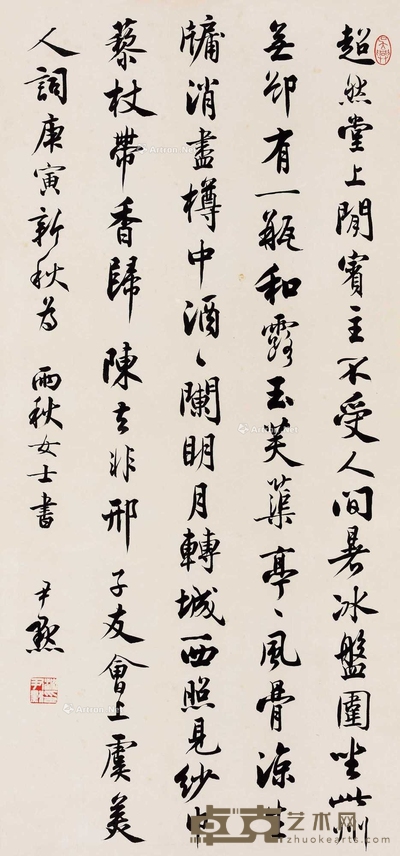 超然堂上閒賓主不受人間暑冰盤圍坐此州
無卻有一瓶和露玉芙蕖亭〻風骨涼生
牖消盡樽中酒〻闌明月轉城西照見紗巾
藜杖帶香歸陳去非邢子友會上虞美
人詞庚寅新秋為 雨秋女士書 尹默
卓克艺术网
www.zhuokearts.com